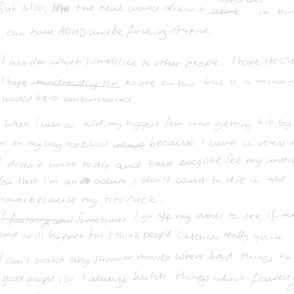 But also, the real world doesn't in bin
can have ADHD and be fucking stupid.
I wonder what I smell like to other people... I hope its cle
I hope no one on this bus is a mind r
would be so embarrassed.
when I was a kid, my biggest fear was getting hit by
on my way to school because I wore a dress
I didn't want to die and have everyone see my undi
Now that I'm an adult I don't want to die in the
shower because my tits suck.
Sometimes I go off my meds to see if
will happen but I think people catch on really quick
I can't watch any shows or movies where bad things ha
good people, so I always watch things where flawed